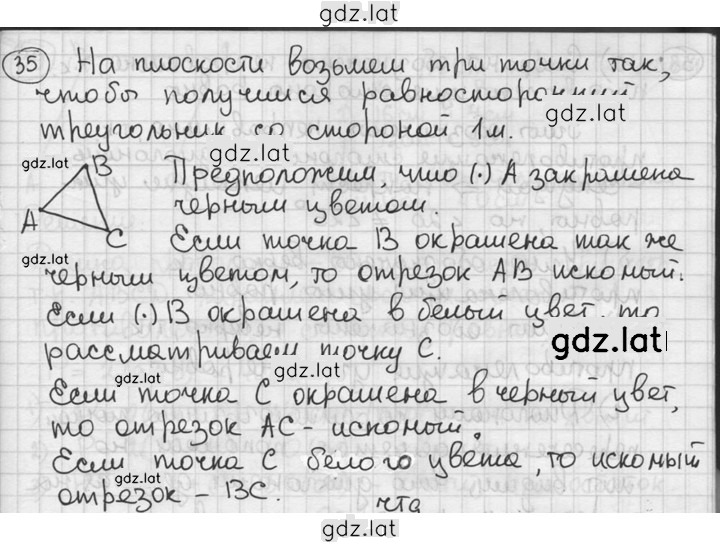 gdz.lat
35 На плоскости возьмем три точки так,
чтобы получился равносторонний
gdz.lat
треугольник со стороной 1м.
gdz.lat
gdz.lat
B
A
C
Предположим, что (·) A закрашена
черным цветом.
Если точка B окрашена так же
черным цветом, то отрезок AB искомый.
Если (·) B окрашена в белый цвет то
рассматриваем точку C.
gdz.lat
gdz.lat
Если точка C окрашена в черный цвет,
то отрезок AC - искомый.
gdz.lat
Если точка C белого цвета, то искомый
gdz.lat
отрезок - BC.
чтд
gdz.lat